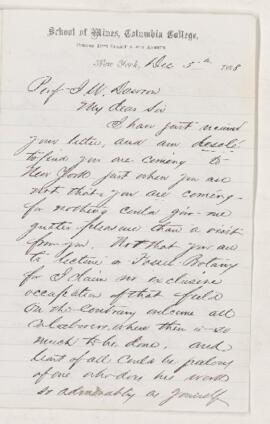 School of Mines, Columbia College,
New York, Dec 5th 1868
Prof J. W. Dawson
My dear Sir
I have just received
your letter, and am desolé
to find you are coming to
New York just when you are
Not that you are coming –
for nothing could give me
greater pleasure than a visit
from you. Not that you are
to lecture on Fossil Botany
for I claim no exclusive
occupation of that field
On the contrary welcome all
colaborers where there is so
much to be done, and
least of all could be jealous
of one who does his work
so admirably as yourself